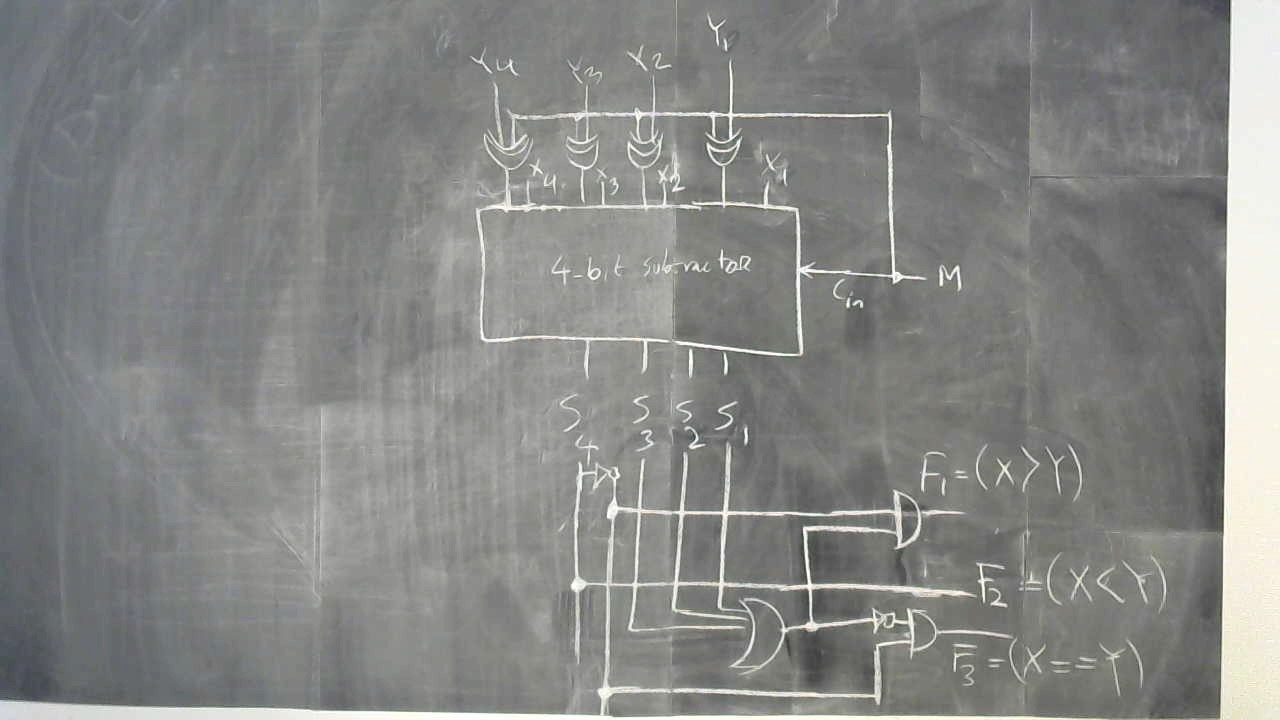 Y4 Y3 Y2 Y1
X4 X3 X2 X1
4-bit subtractor
Cin
M
S4 S3 S2 S1
F1 = (X > Y)
F2 = (X < Y)
F3 = (X == Y)